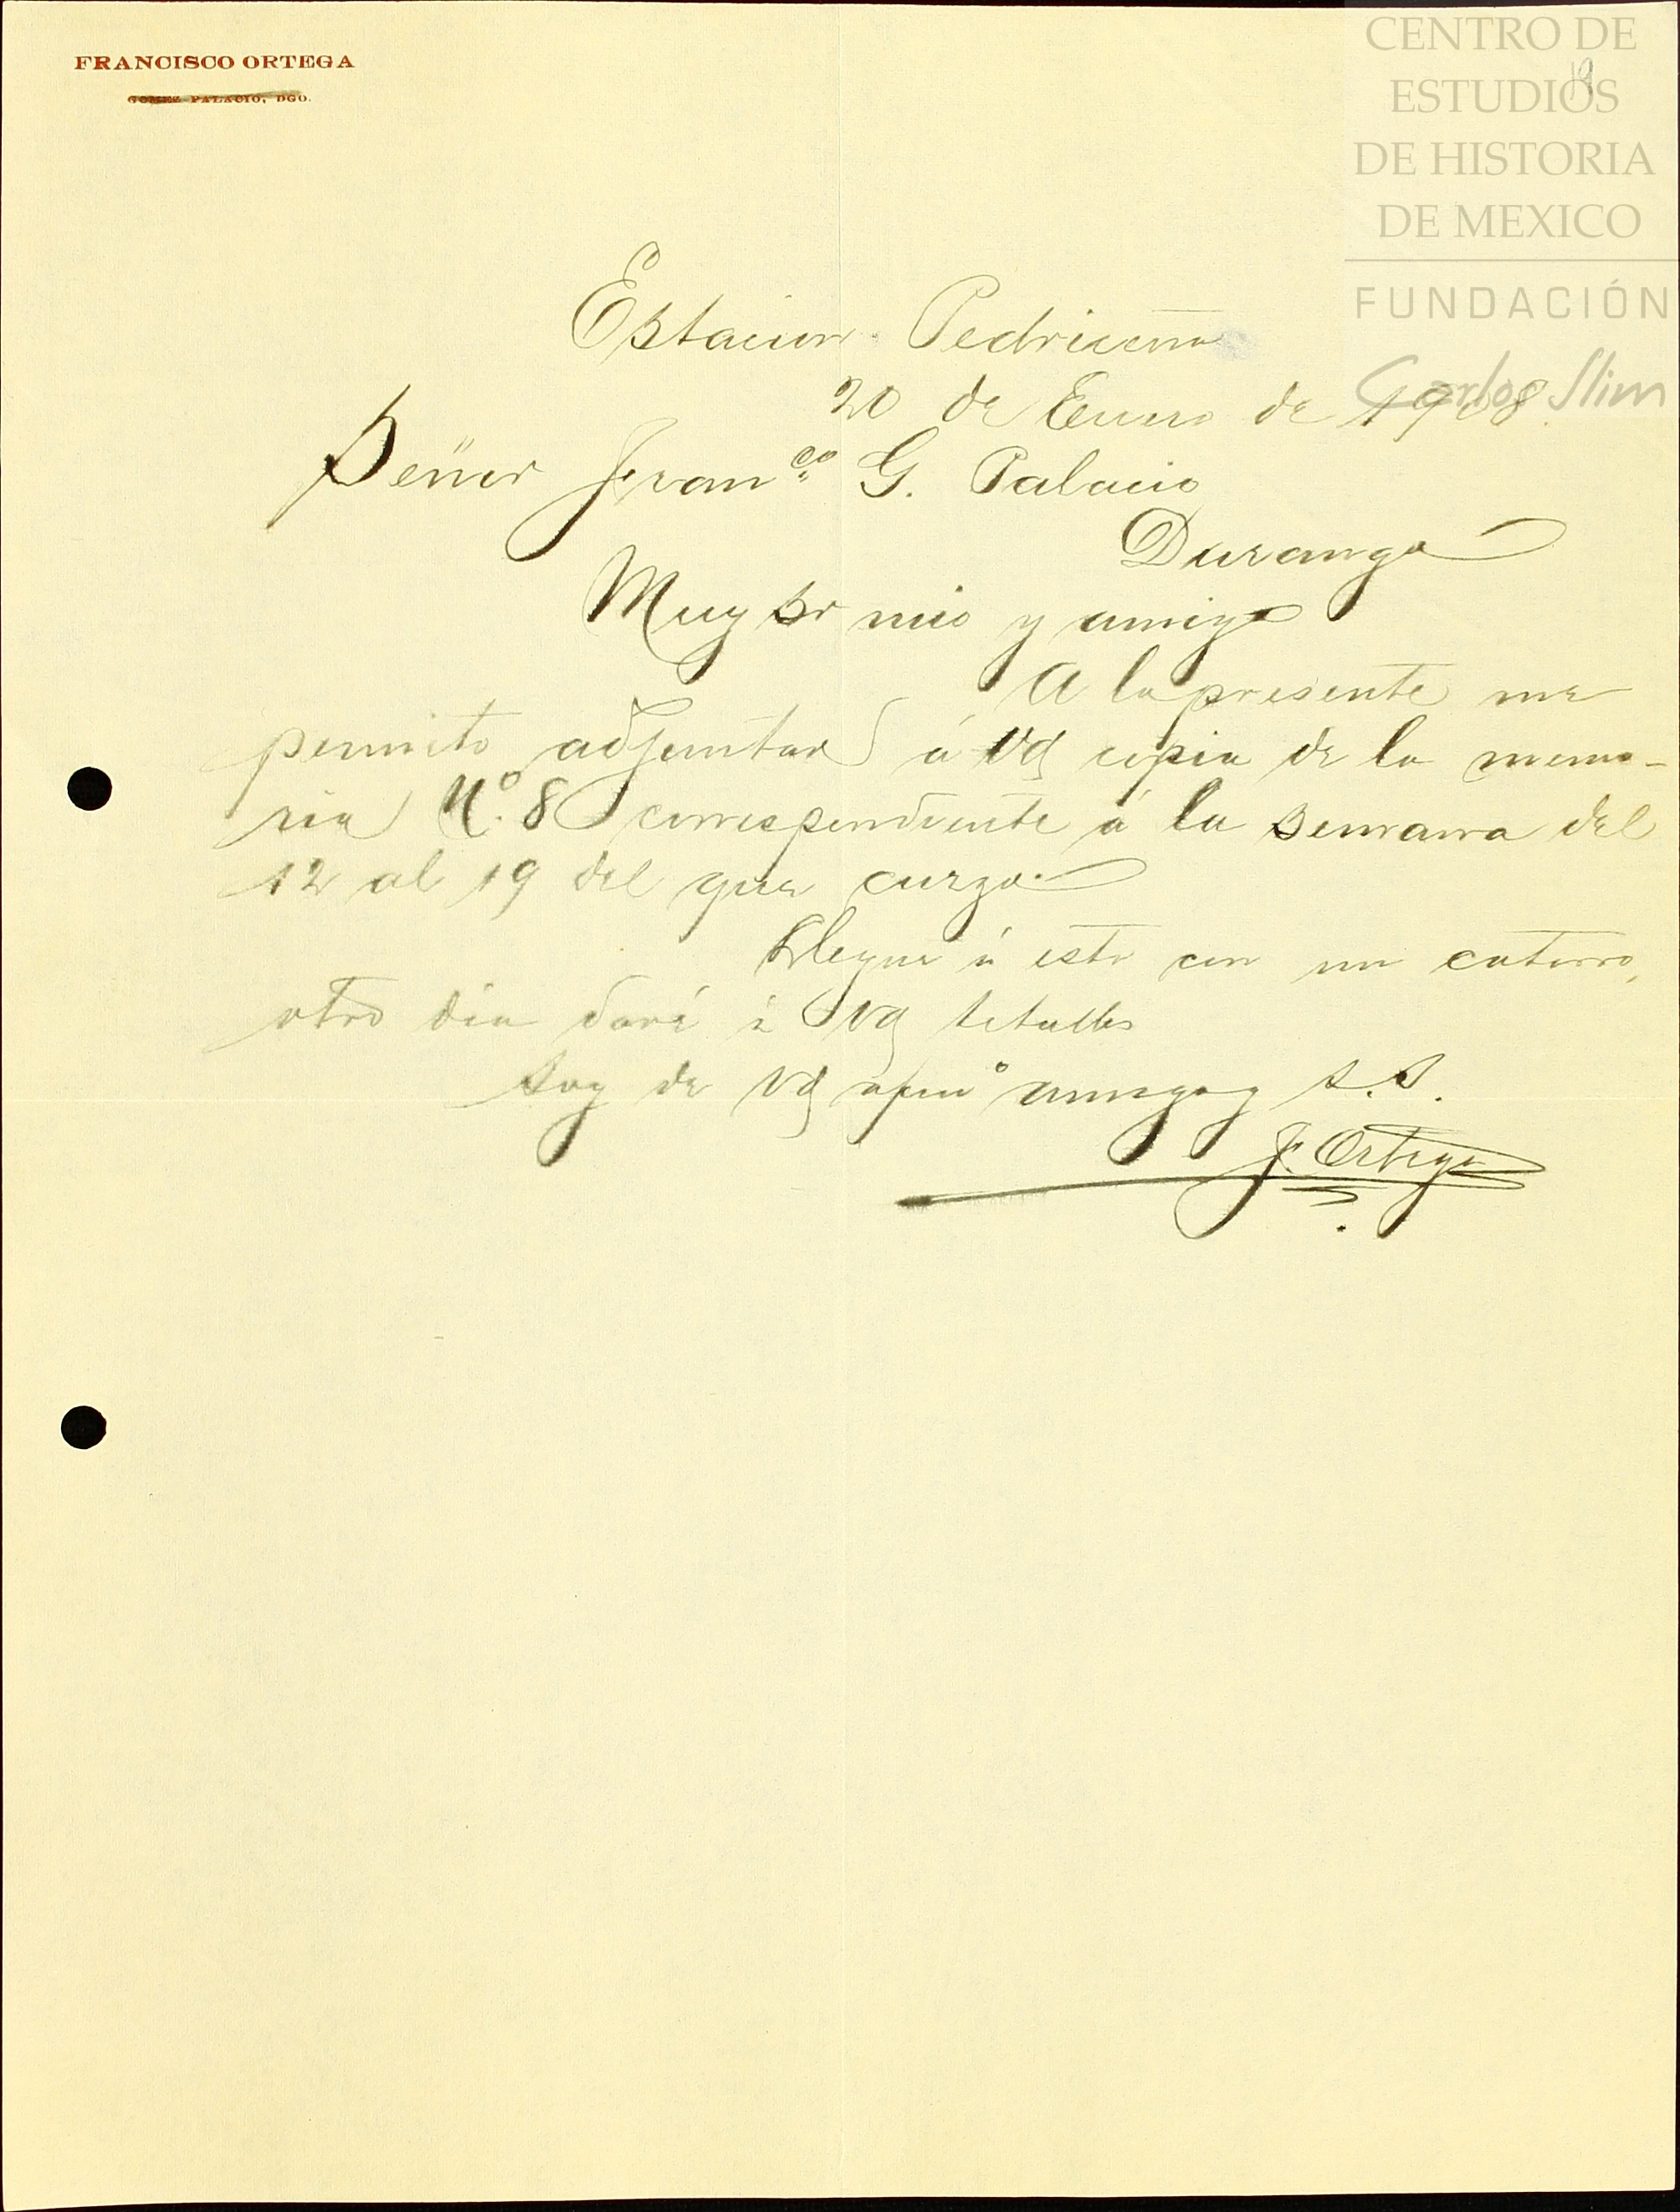 FRANCISCO ORTEGA
GOMEZ PALACIO, DGO.
CENTRO DE
ESTUDIOS
DE HISTORIA
DE MEXICO
FUNDACIÓN
Carlos Slim
19
Estacion Pedriceña
20 de Enero de 1908.
Señor Franco. G. Palacio
Durango
Muy Sr mio y amigo
A la presente me
permito adjuntar á Vd copia de la memo-
ria No. 8 correspondiente á la semana del
12 al 19 del que curza.
Llegue á esta con un catarro,
otro dia daré á Vd detalles
Soy de Vd afmo amigo y S.S.
F. Ortega